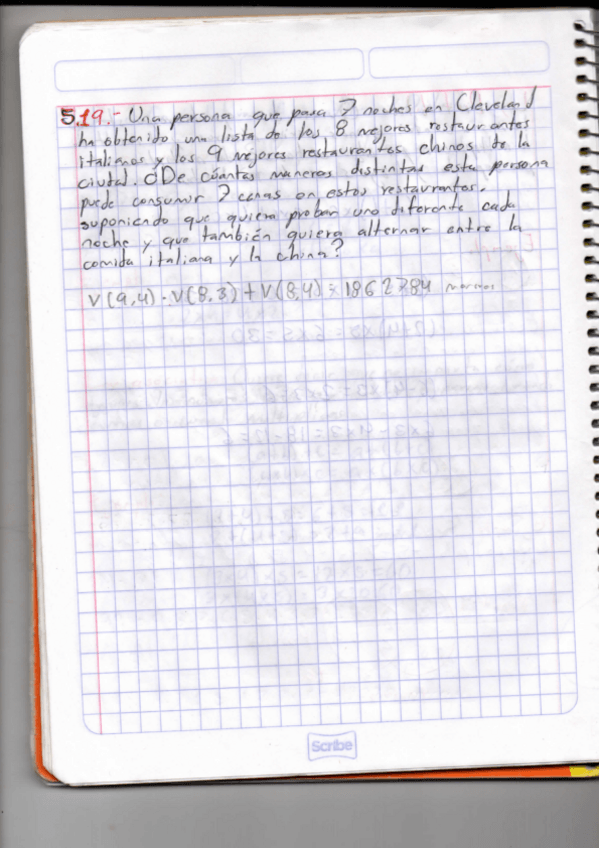 5.19.- Una persona que pasa 7 noches en Cleveland
ha obtenido una lista de los 8 mejores restaurantes
italianos y los 9 mejores restaurantes chinos de la
ciudad. ¿De cúantas maneras distintas esta persona
puede consumir 7 cenas en estos restaurantes.
suponiendo que quiera probar uno diferente cada
noche y que también quiera alternar entre la
comida italiana y la china?
V(9,4)·V(8,3)+V(8,4)=1862784
Scribe